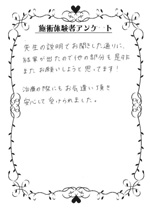 施術体験者アンケート
先生の説明でお聞きした通りに、
結果が出たので他の部分も是非
またお願いしようと思ってます!
治療の際にもお気遣い頂き
安心して受けられました。